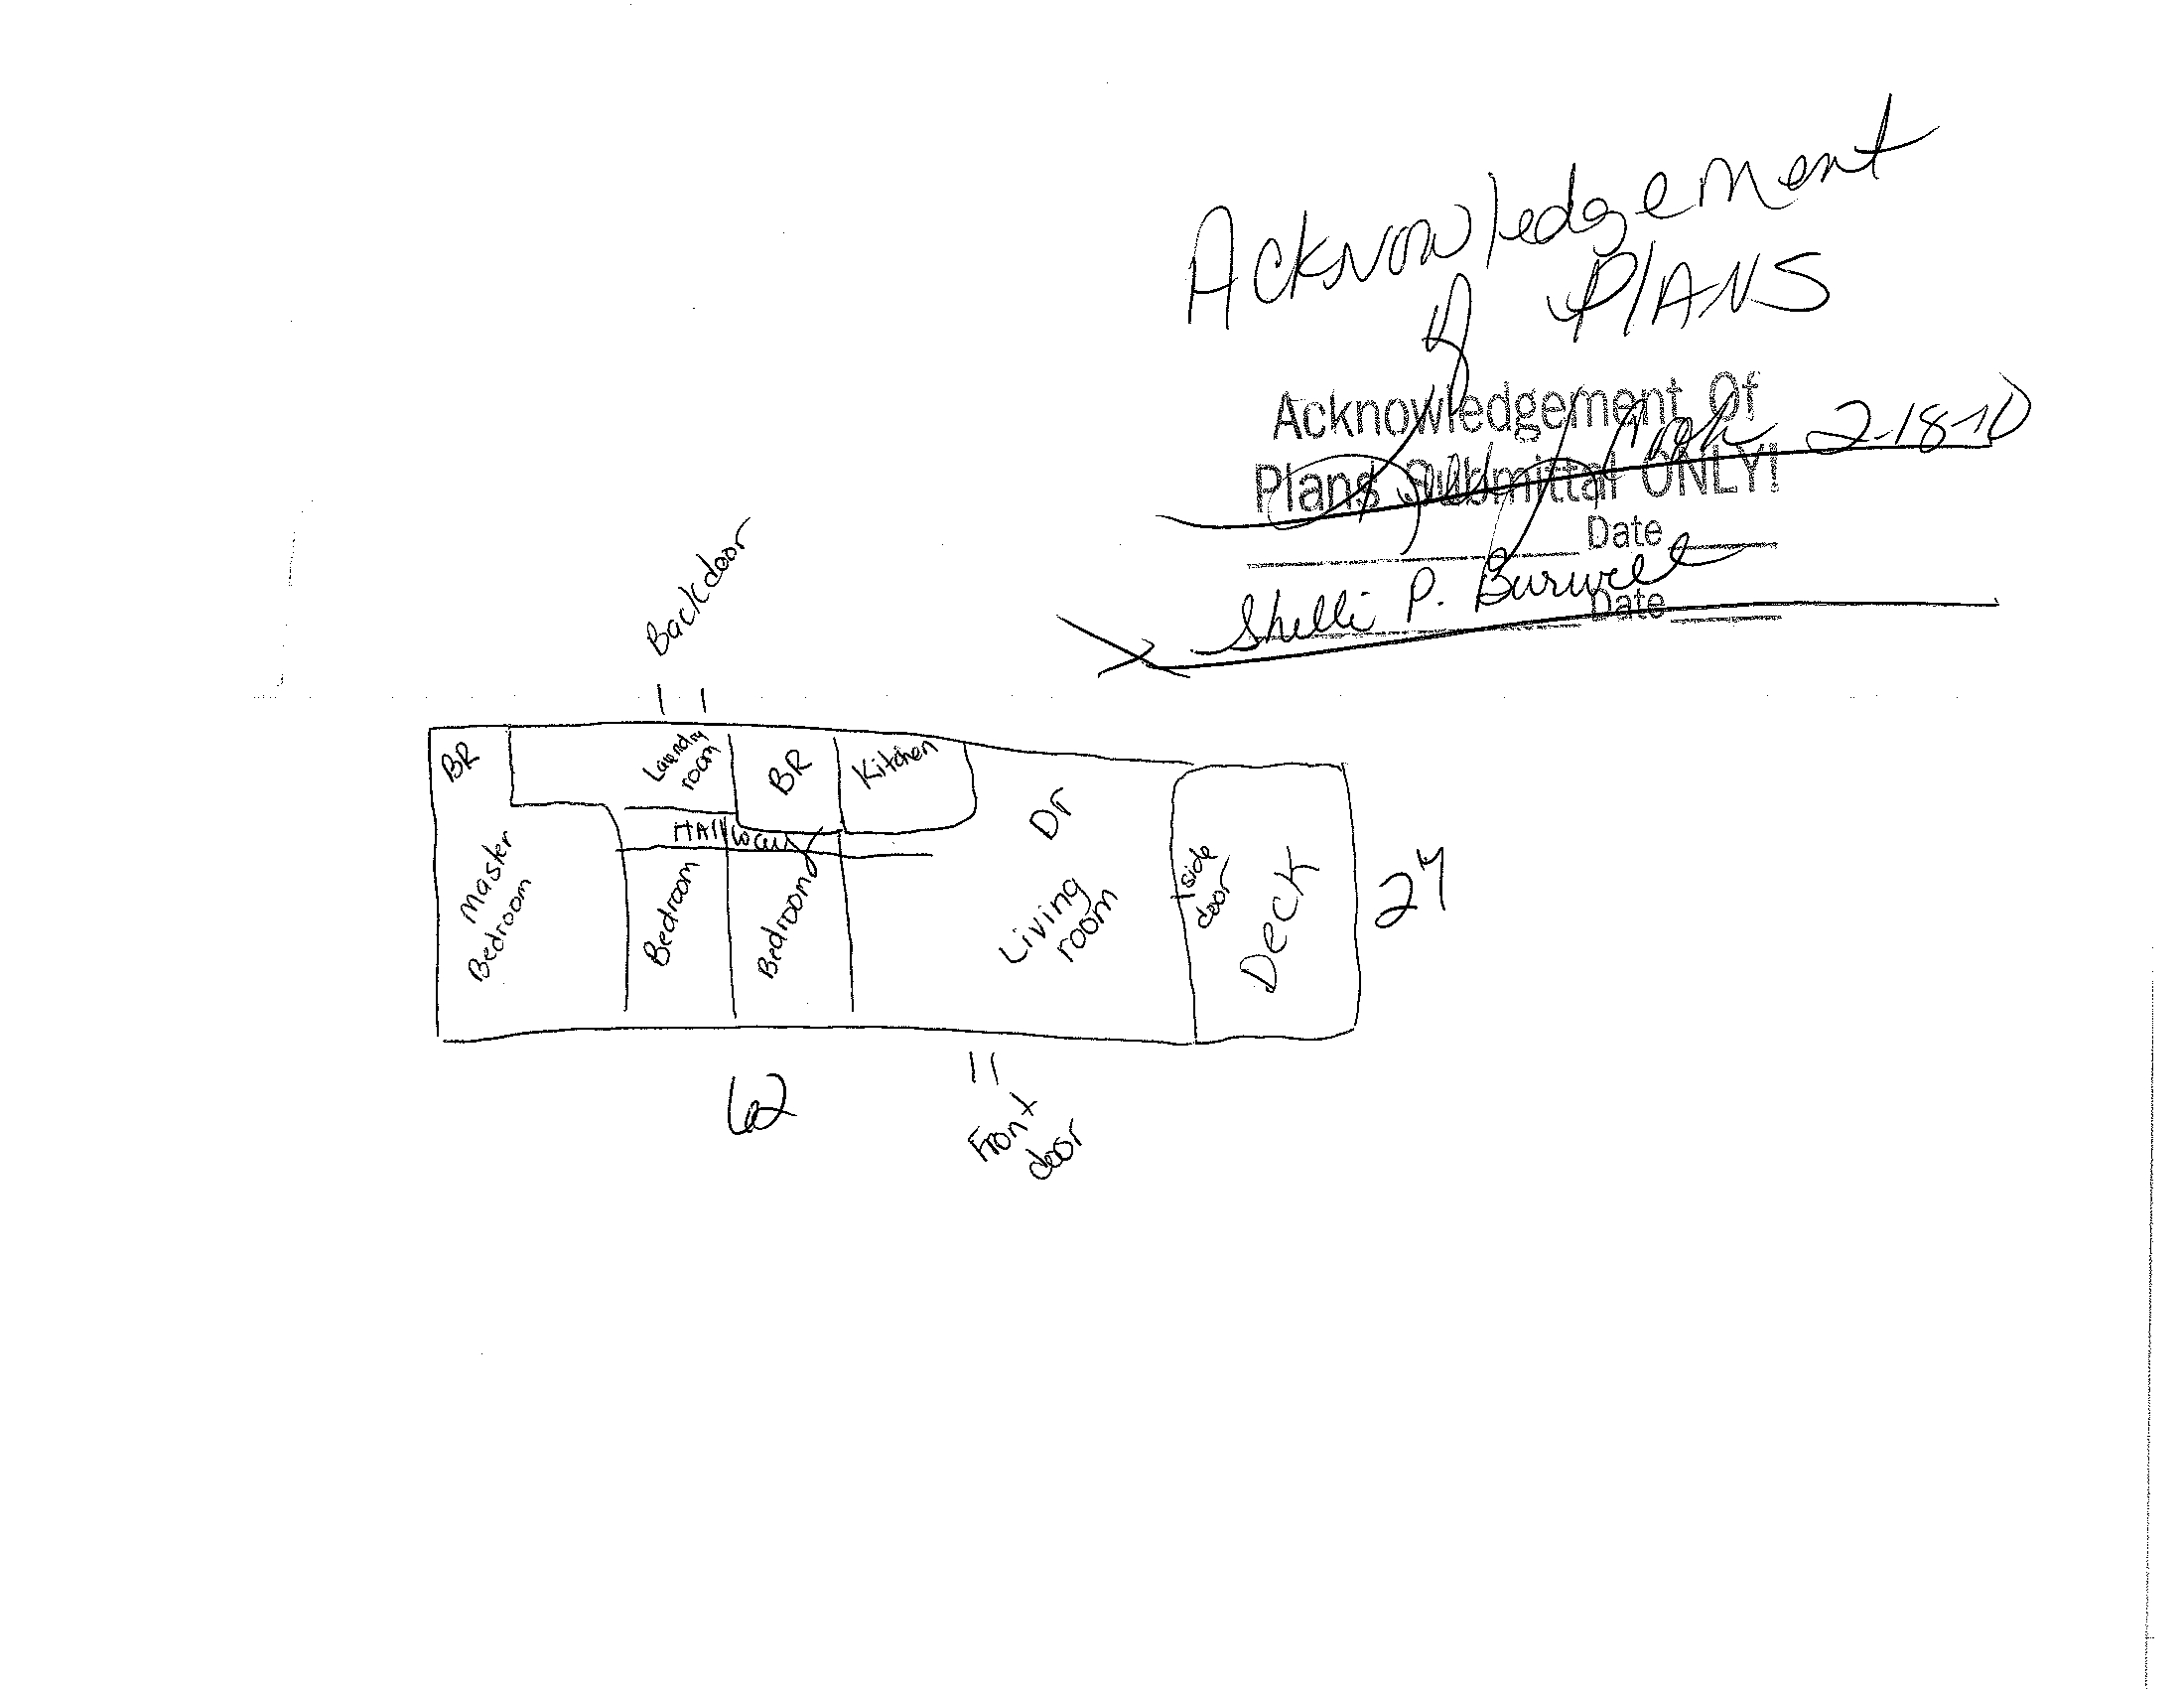 Acknowledgement
of PLANS
Acknowledgement Of
Plans Submittal ONLY!
2-18-10
Date
Shelli P. Burwell
Date
Back door
BR
Laundry
room
BR
Kitchen
Hallway
Dr
Master
Bedroom
Bedroom
Bedroom
Living
room
side
door
Deck
62
Front
door